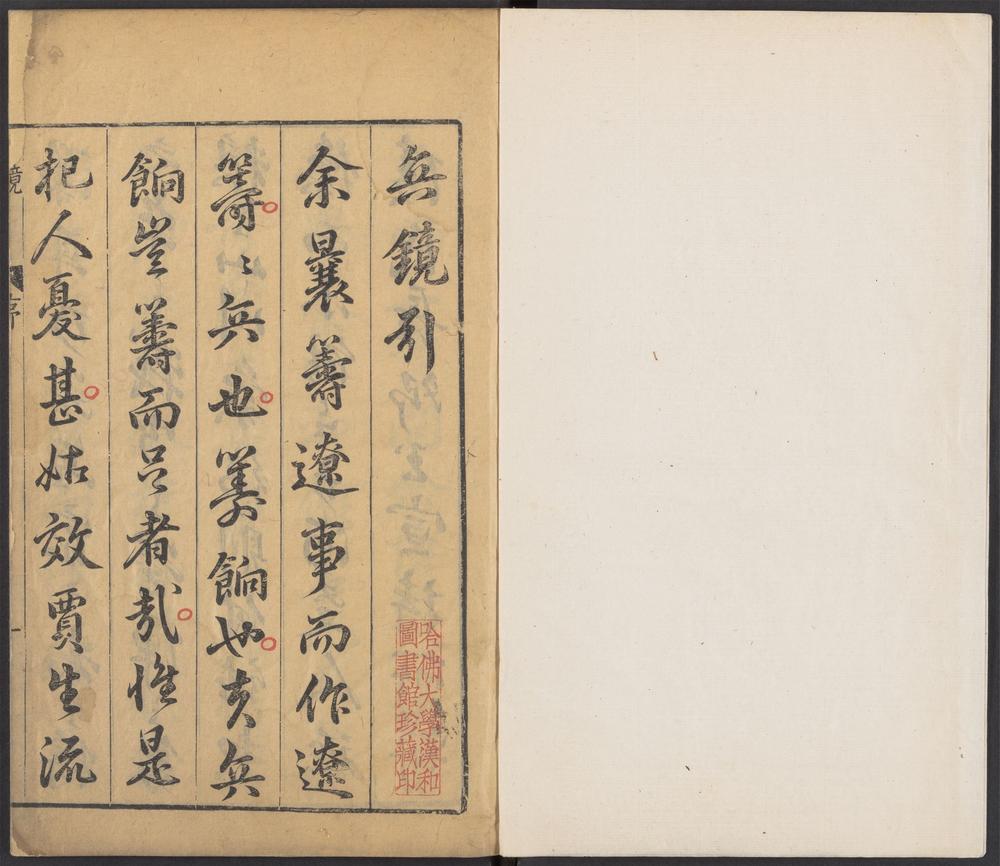 兵鏡引
余曩籌遼事而作遼
籌〻兵也籌餉也夫兵
餉豈籌而已者哉惟是
杞人憂甚姑效賈生流
鏡
序
一
哈佛大學漢和
圖書館珍藏印